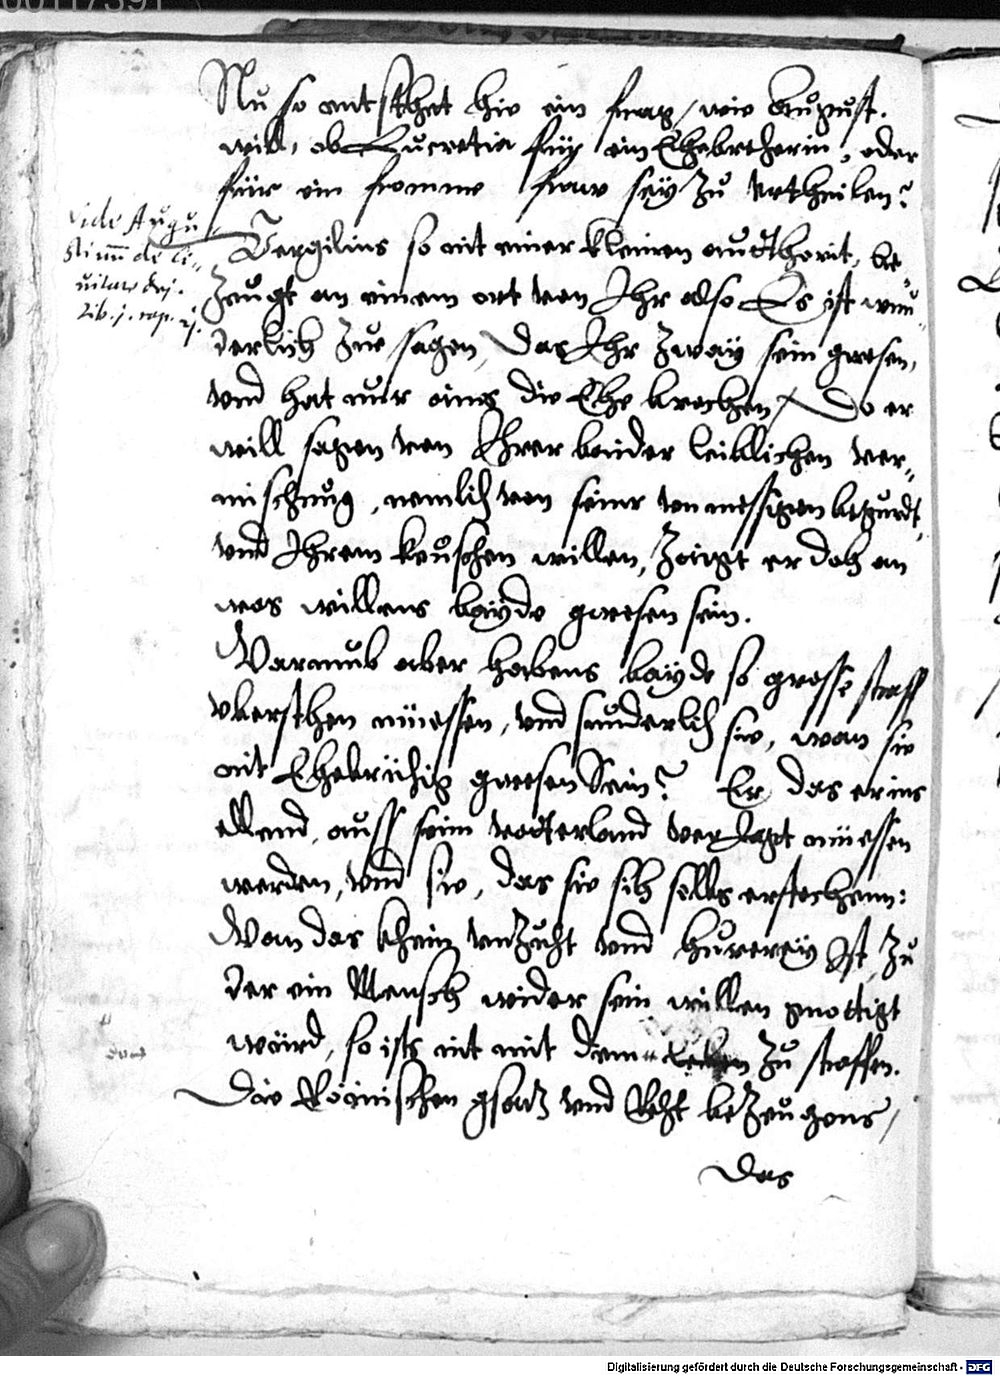 00117391
Nu so entsthet hie ein frag / wie August.
will, ob Lucretia für ein Ehebrecherin, oder
für ein fromme fraw sey zu vrtheilen?
Vide Augu
stinum de ci-
uitate dej.
Lib. j. cap. 
Vergilius so nit einer kleinen aucthorit, be-
zeugt an einem ort von Ihr also Es ist wun-
derlich zue sagen, das Ihr zway sein gwesen,
vnd hat nur eins die Ehe brochen / Do er
will sagen von Ihrer beider leiblichen ver-
mischung, nemlich von seiner vnmessigen begirdt,
vnd Ihrem keuschen willen, zaigt er doch an
was willens bayde gwesen sein.
Warumb aber habens bayde so grosse straff
vbersthen müessen, vnd sunderlich sie, wan sie
nit Ehebrüchig gwesen sein? Er das er ins
ellend, auss seim vatterland veriagt müessen
werden, vnd sie, das sie sich selbs erstochenn:
Wan das khein vnzucht vnd hurerey Ist, zu
der ein Mensch wider sein willen gnottigt
würd, so ists nit mit dem leben zu straffen.
Die Römischen gsatz vnd Recht bezeugens /
Das
Digitalisierung gefördert durch die Deutsche Forschungsgemeinschaft - DFG